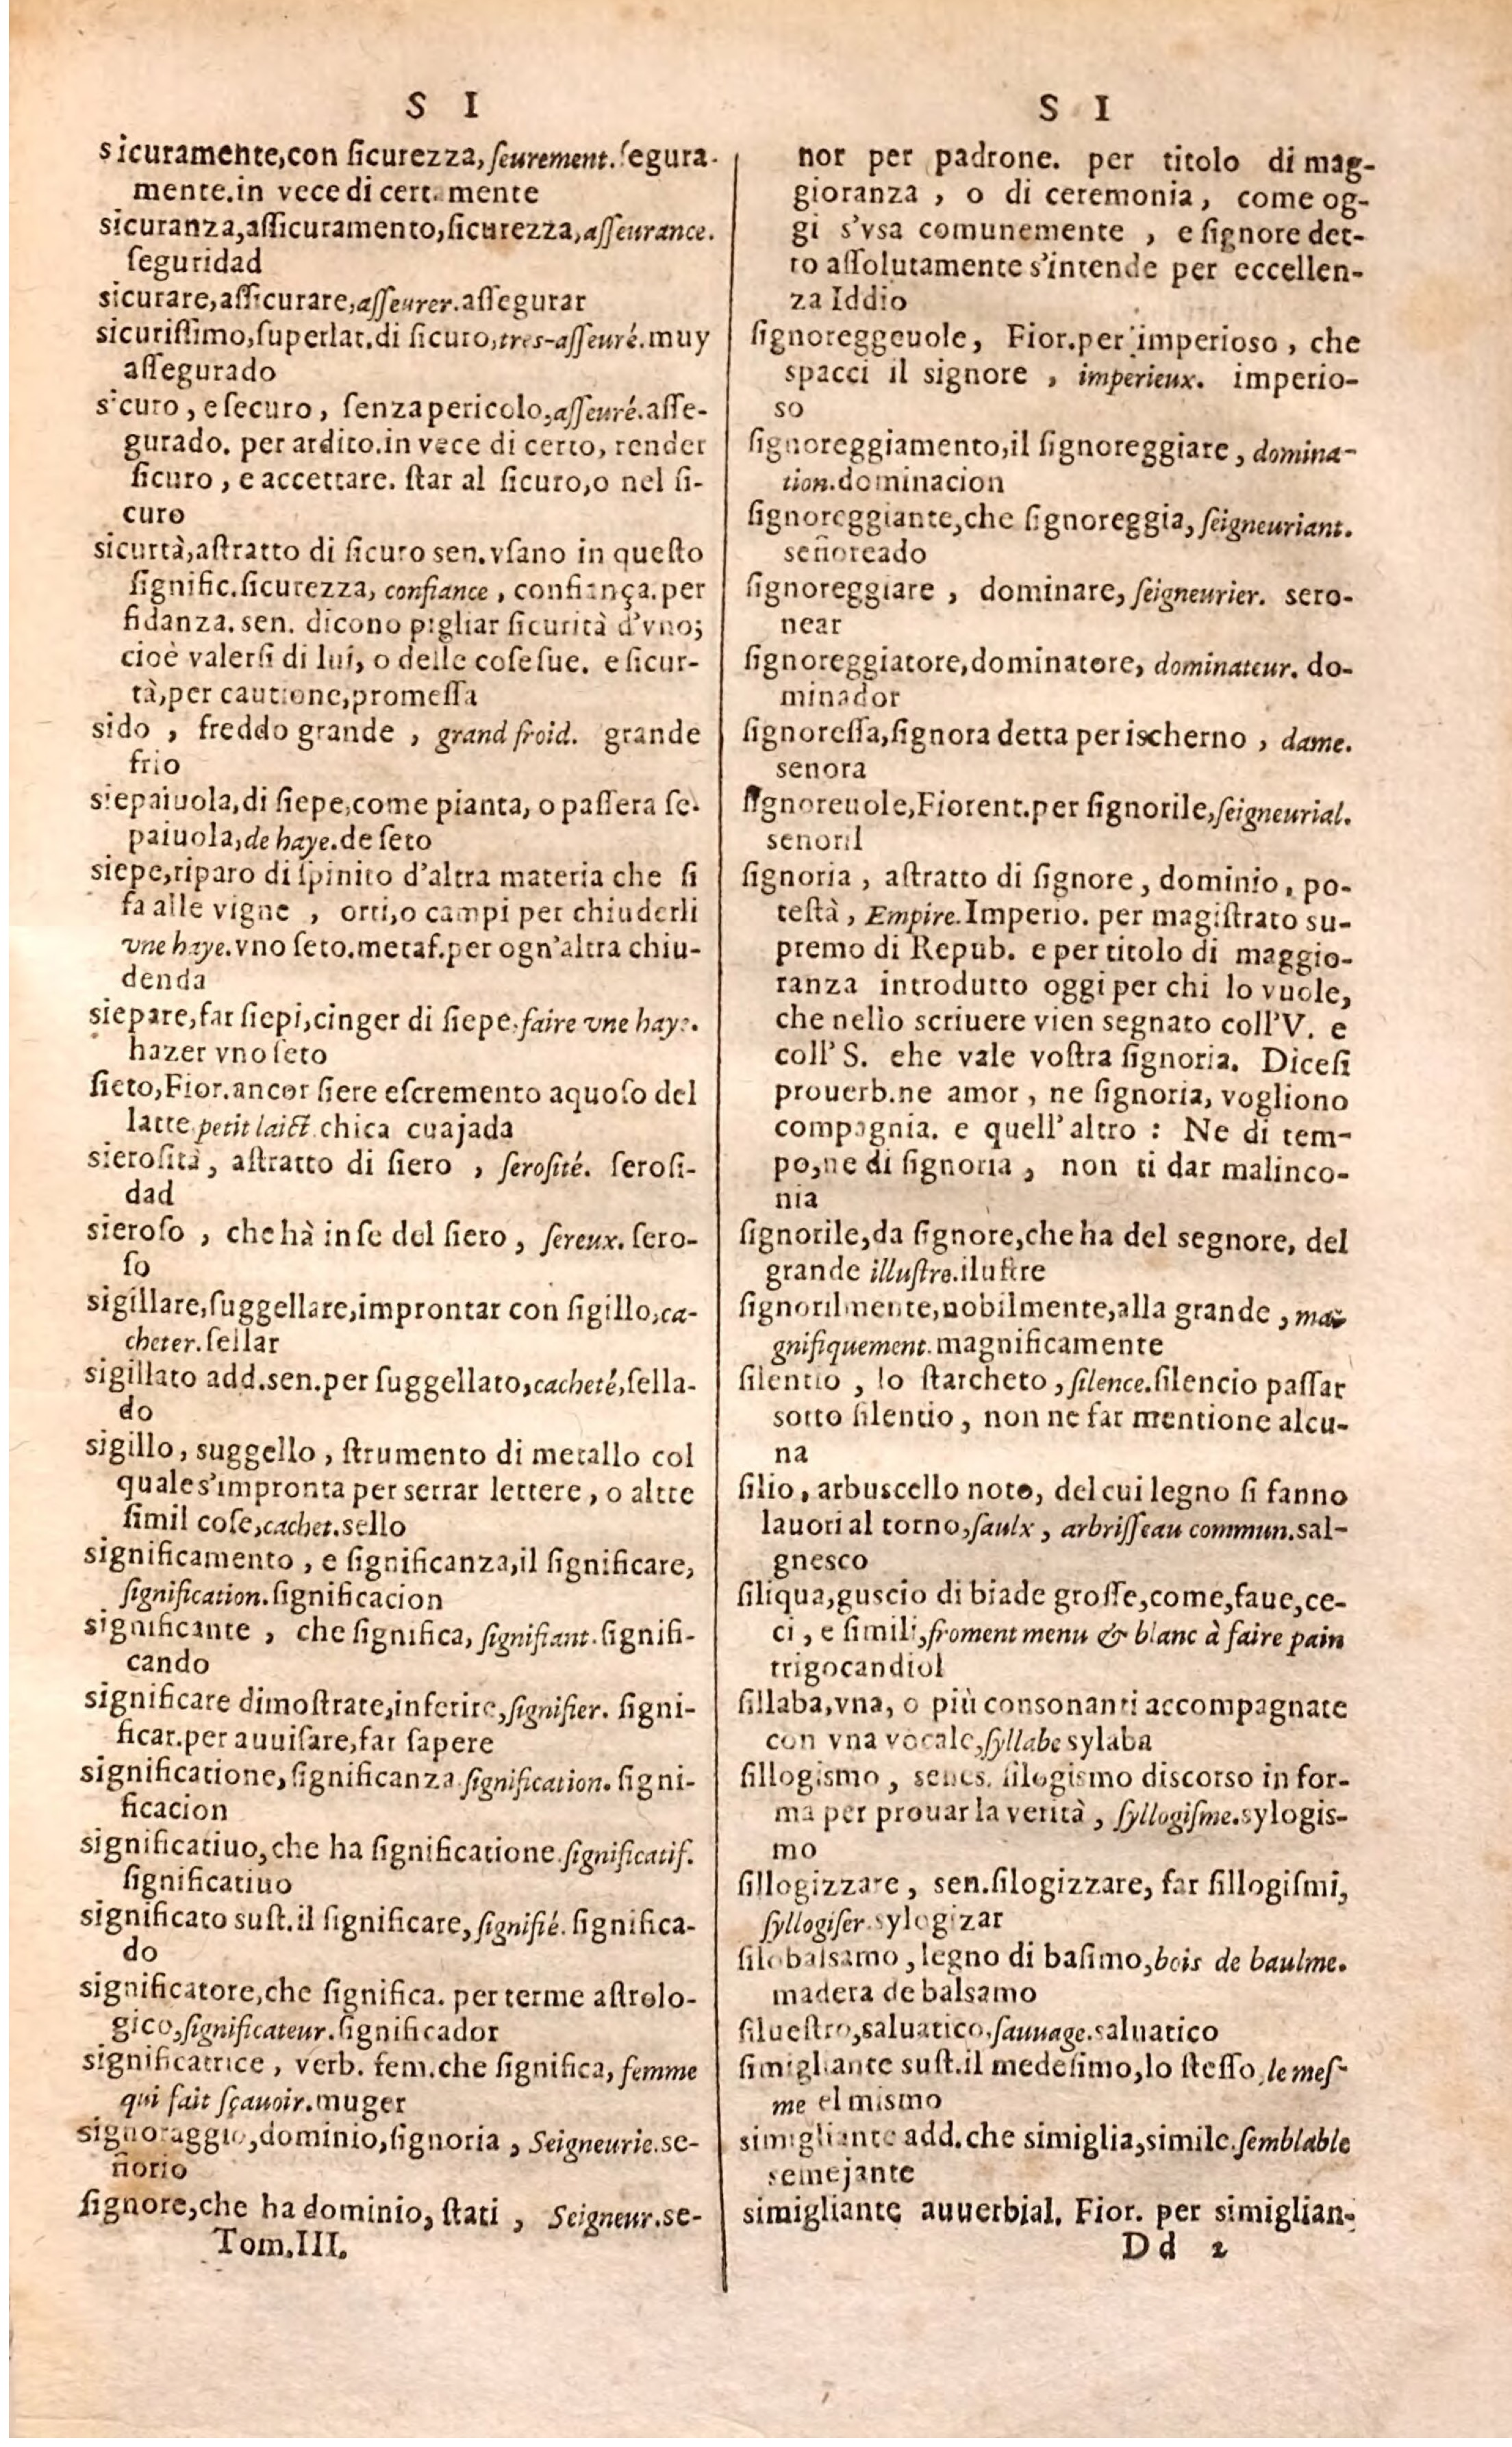 S I
sicuramente,con ſicurezza,ſeurement.ſegura-
mente.in vece di certamente
sicuranza,aſſicuramento,ſicurezza,aſſeurance.
ſeguridad
sicurare,aſſicurare,aſſeurer.aſſegurar
sicuriſſimo,ſuperlat.di ſicuro,tres-aſſeuré.muy
aſſegurado
sicuro , e ſecuro , ſenza pericolo,aſſeuré.aſſe-
gurado. per ardito.in vece di certo, render
ſicuro , e accettare. ſtar al ſicuro,o nel ſi-
curo
sicurtà,aſtratto di ſicuro sen.vſano in queſto
ſignific.ſicurezza, confiance , confiança.per
fidanza.sen. dicono pigliar ſicurità d'vno;
cioè valerſi di lui, o delle coſe ſue. e ſicur-
tà,per cautione,promeſſa
sido , freddo grande , grand froid. grande
frio
siepaiuola,di ſiepe,come pianta, o paſſera ſe-
paiuola,de haye.de ſeto
siepe,riparo di ſpinito d'altra materia che ſi
fa alle vigne , orti,o campi per chiuderli
vne haye.vno ſeto.metaf.per ogn'altra chiu-
denda
siepare,far ſiepi,cinger di ſiepe,faire vne haye.
hazer vno ſeto
ſieto,Fior.ancor ſiere eſcremento aquoſo del
latte.petit laict.chica cuajada
sieroſità , aſtratto di ſiero , ſeroſité. ſeroſi-
dad
sieroſo , che hà in ſe del ſiero , ſereux. ſero-
ſo
sigillare,ſuggellare,improntar con ſigillo,ca-
cheter.ſellar
sigillato add.sen.per ſuggellato,cacheté,ſella-
do
sigillo, suggello , ſtrumento di metallo col
quale s'impronta per serrar lettere , o altte
ſimil coſe,cachet.sello
significamento , e ſignificanza,il ſignificare,
ſignification.ſignificacion
significante , che ſignifica, ſignifiant.ſignifi-
cando
significare dimoſtrate,inferire,ſignifier. ſigni-
ficar.per auuiſare,far ſapere
significatione,ſignificanza.ſignification. ſigni-
ficacion
significatiuo,che ha ſignificatione.ſignificatif.
ſignificatiuo
significato suſt.il ſignificare,ſignifié. ſignifica-
do
significatore,che ſignifica. per terme aſtrolo-
gico,ſignificateur.ſignificador
significatrice , verb. fem.che ſignifica, femme
qui fait ſçauoir.muger
signoraggio,dominio,ſignoria , Seigneurie.se-
ñorio
ſignore,che ha dominio, ſtati , Seigneur.se-
Tom.III.
S I
nor per padrone. per titolo di mag-
gioranza , o di ceremonia, come og-
gi s'vsa comunemente , e ſignore det-
to aſſolutamente s'intende per eccellen-
za Iddio
ſignoreggeuole, Fior.per imperioso , che
spacci il signore , imperieux. imperio-
so
ſignoreggiamento,il ſignoreggiare , domina-
tion.dominacion
ſignoreggiante,che ſignoreggia, ſeigneuriant.
señoreado
ſignoreggiare , dominare, ſeigneurier. sero-
near
ſignoreggiatore,dominatore, dominateur. do-
minador
ſignoreſſa,ſignora detta per ischerno , dame.
senora
ſignoreuole,Fiorent.per ſignorile,ſeigneurial.
senoril
ſignoria , aſtratto di ſignore , dominio , po-
teſtà , Empire.Imperio. per magiſtrato su-
premo di Repub. e per titolo di maggio-
ranza introdutto oggi per chi lo vuole,
che nello scriuere vien segnato coll'V. e
coll' S. ehe vale voſtra ſignoria. Diceſi
prouerb.ne amor , ne ſignoria, vogliono
compagnia. e quell'altro : Ne di tem-
po,ne di ſignoria , non ti dar malinco-
nia
ſignorile,da ſignore,che ha del segnore, del
grande illuſtre.iluſtre
ſignorilmente,nobilmente,alla grande , ma-
gnifiquement.magnificamente
ſilentio , lo ſtarcheto , ſilence.ſilencio paſſar
sotto ſilentio , non ne far mentione alcu-
na
ſilio , arbuscello noto, del cui legno ſi fanno
lauori al torno,ſaulx , arbriſſeau commun.sal-
gnesco
ſiliqua,guscio di biade groſſe,come,faue,ce-
ci , e ſimili,froment menu & blanc à faire pain
trigocandiol
ſillaba,vna, o più consonanti accompagnate
con vna vocale,ſyllabe sylaba
ſillogismo , senes. ſilogismo discorso in for-
ma per prouar la verità , ſyllogiſme.sylogis-
mo
ſillogizzare , sen.ſilogizzare, far ſillogiſmi,
ſyllogiſer.sylogizar
ſilobalsamo , legno di baſimo,bois de baulme.
madera de balsamo
ſilueſtro,saluatico,ſauuage.saluatico
ſimigliante suſt.il medeſimo,lo ſteſſo,le meſ-
me el mismo
simigliante add.che simiglia,simile.ſemblable
semejante
simigliante auuerbial. Fior. per simiglian-
D d 2